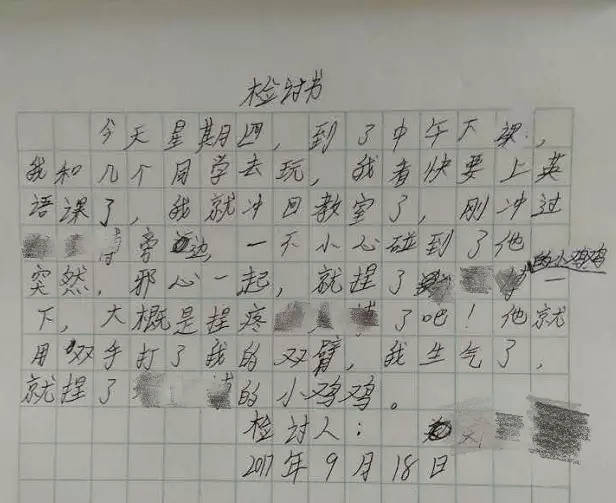 检讨书
今天星期四，到了中午下课，
我和几个同学去玩，我看快要上英
语课了，我就冲回教室了，刚冲过
旁边，一不小心碰到了他
突然，邪心一起，就捏了的小鸡鸡一
下，大概是捏疼了吧！他就
用双手打了我的双臂，我生气了，
就捏了的小鸡鸡。
检讨人：
2017年9月18日